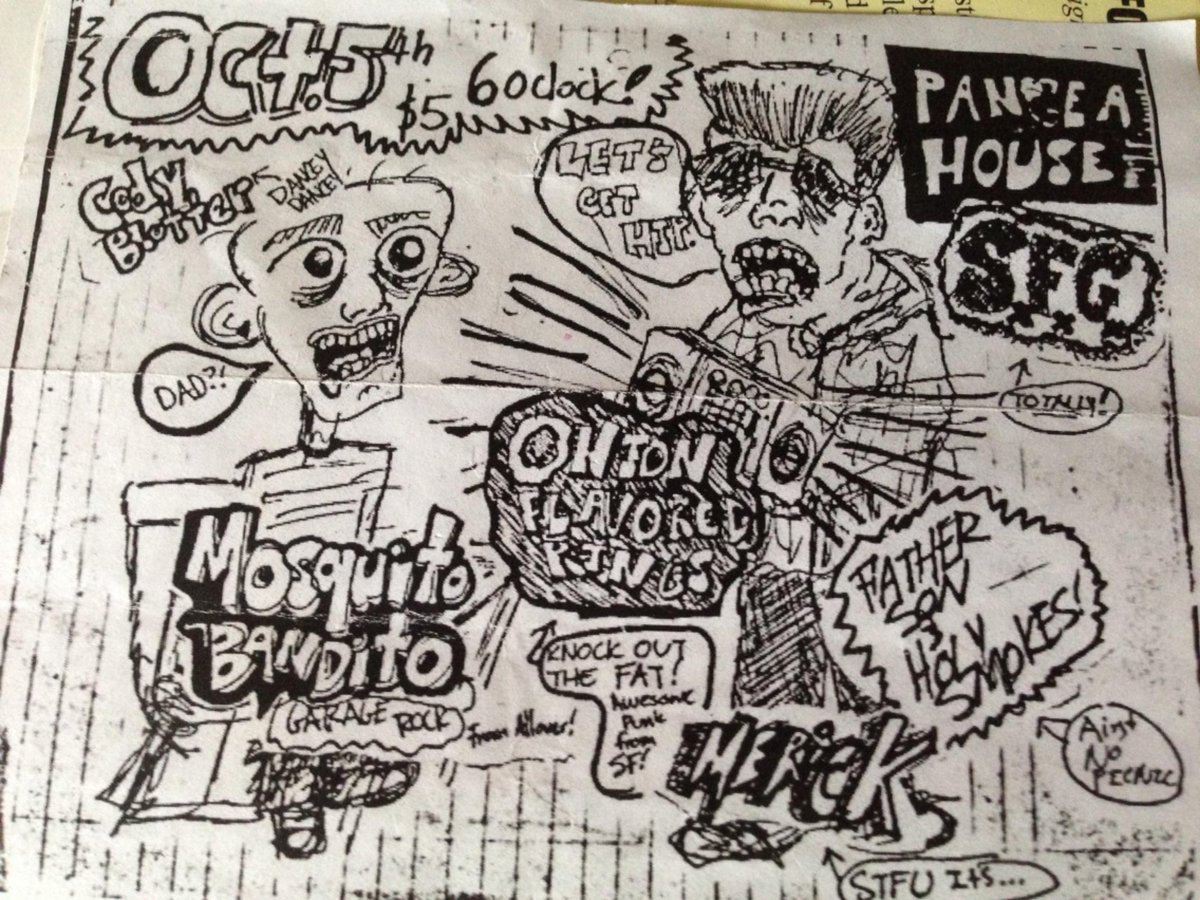 Oct. 5th
$5
6 oclock!
PANGEA
HOUSE
Cody
Blotter
DANCY
DANCE!
LET'S
GET
HIT.
S.F.G.
TOTALLY!
DAD?!
ONION
FLAVORED
RINGS
Mosquito
BANDITO
GARAGE ROCK
from Allover!
KNOCK OUT
THE FAT!
AWESOME
PUNK
from
SF!
FATHER
SON
HOLY
SMOKES!
Aint
No
PICNIC
MERICK
STFU ITS...